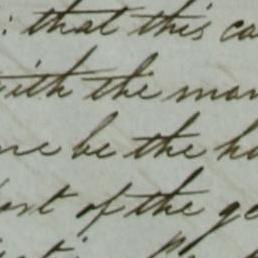 : that this ca
with the man
me be the ho
ost of the ge